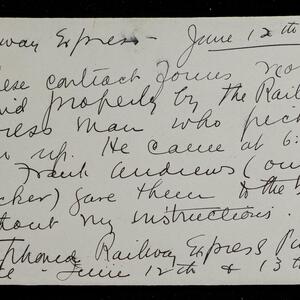 way Express - June 12th
ese contract forms no
id properly by the Rail
ress man who pick
up. He came at 6:
Frank Andrews (ou
cker) gave them to the
thout my instructions.
phoned Railway Express
June 12th & 13th